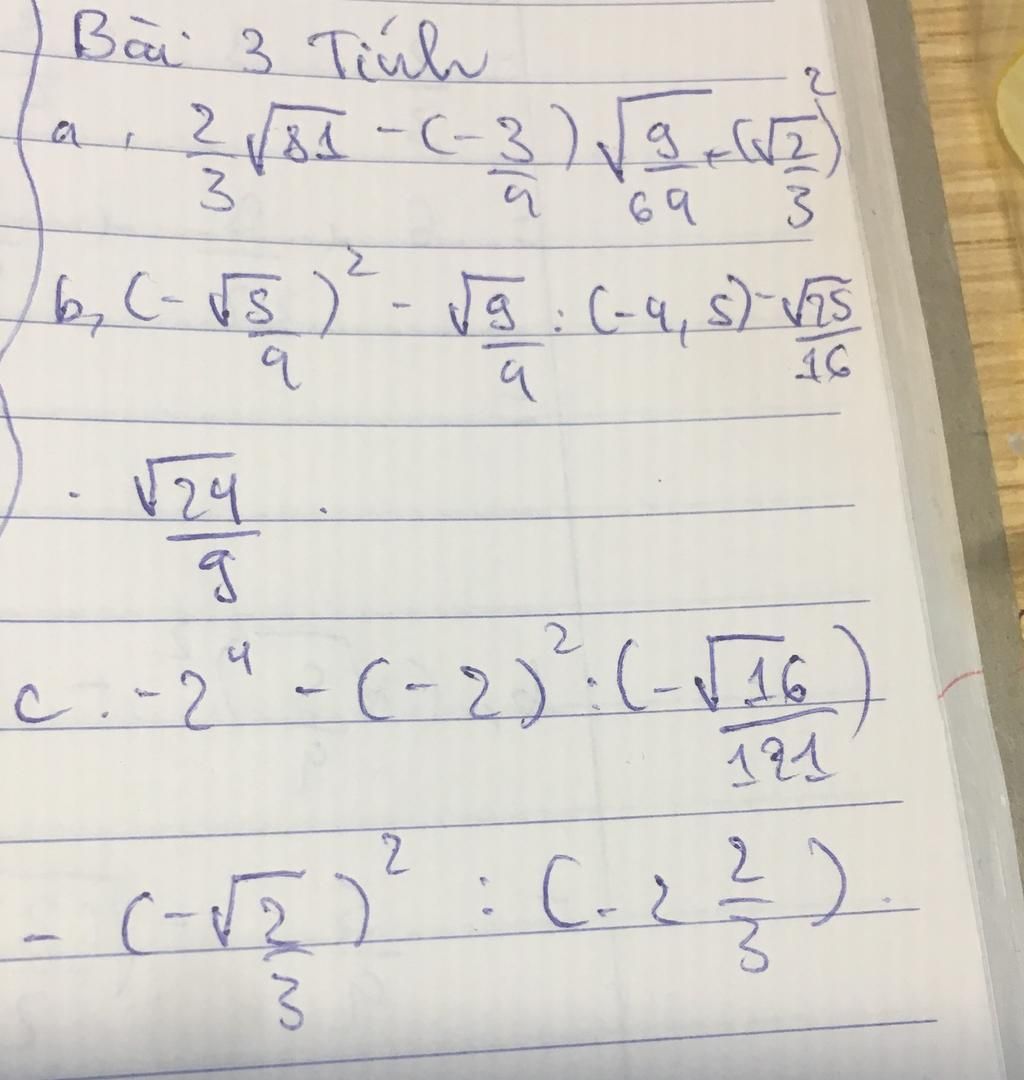 Bài 3 Tính
a, 2/3 √81 - (-3/4) √9/64 + (√2/3)²
b, (-√5/4)² - √9/4 : (-4,5) - √25/16
. √24/9 .
c. -2⁴ - (-2)² : (-√16/121)
- (-√2/3)² : (-2 2/3).